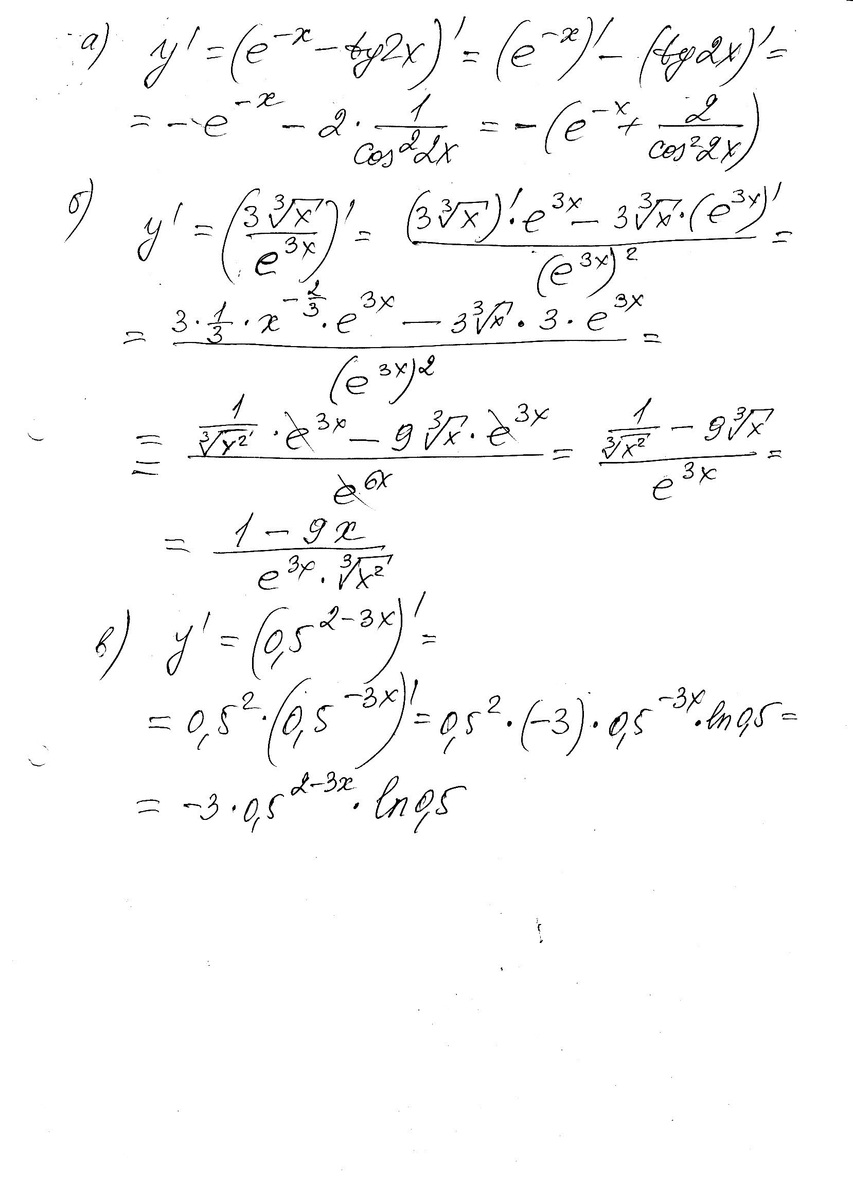 а) y' = (e^{-x} - tg2x)' = (e^{-x})' - (tg2x)' =
= -e^{-x} - 2 · \frac{1}{cos^2 2x} = -(e^{-x} + \frac{2}{cos^2 2x})
б) y' = (\frac{3\sqrt[3]{x}}{e^{3x}})' = \frac{(3\sqrt[3]{x})' · e^{3x} - 3\sqrt[3]{x} · (e^{3x})'}{(e^{3x})^2} =
= \frac{3 · \frac{1}{3} · x^{-\frac{2}{3}} · e^{3x} - 3\sqrt[3]{x} · 3 · e^{3x}}{(e^{3x})^2} =
= \frac{\frac{1}{\sqrt[3]{x^2}} · e^{3x} - 9\sqrt[3]{x} · e^{3x}}{e^{6x}} = \frac{\frac{1}{\sqrt[3]{x^2}} - 9\sqrt[3]{x}}{e^{3x}} =
= \frac{1 - 9x}{e^{3x} · \sqrt[3]{x^2}}
в) y' = (0,5^{2-3x})' =
= 0,5^2 · (0,5^{-3x})' = 0,5^2 · (-3) · 0,5^{-3x} · ln0,5 =
= -3 · 0,5^{2-3x} · ln0,5